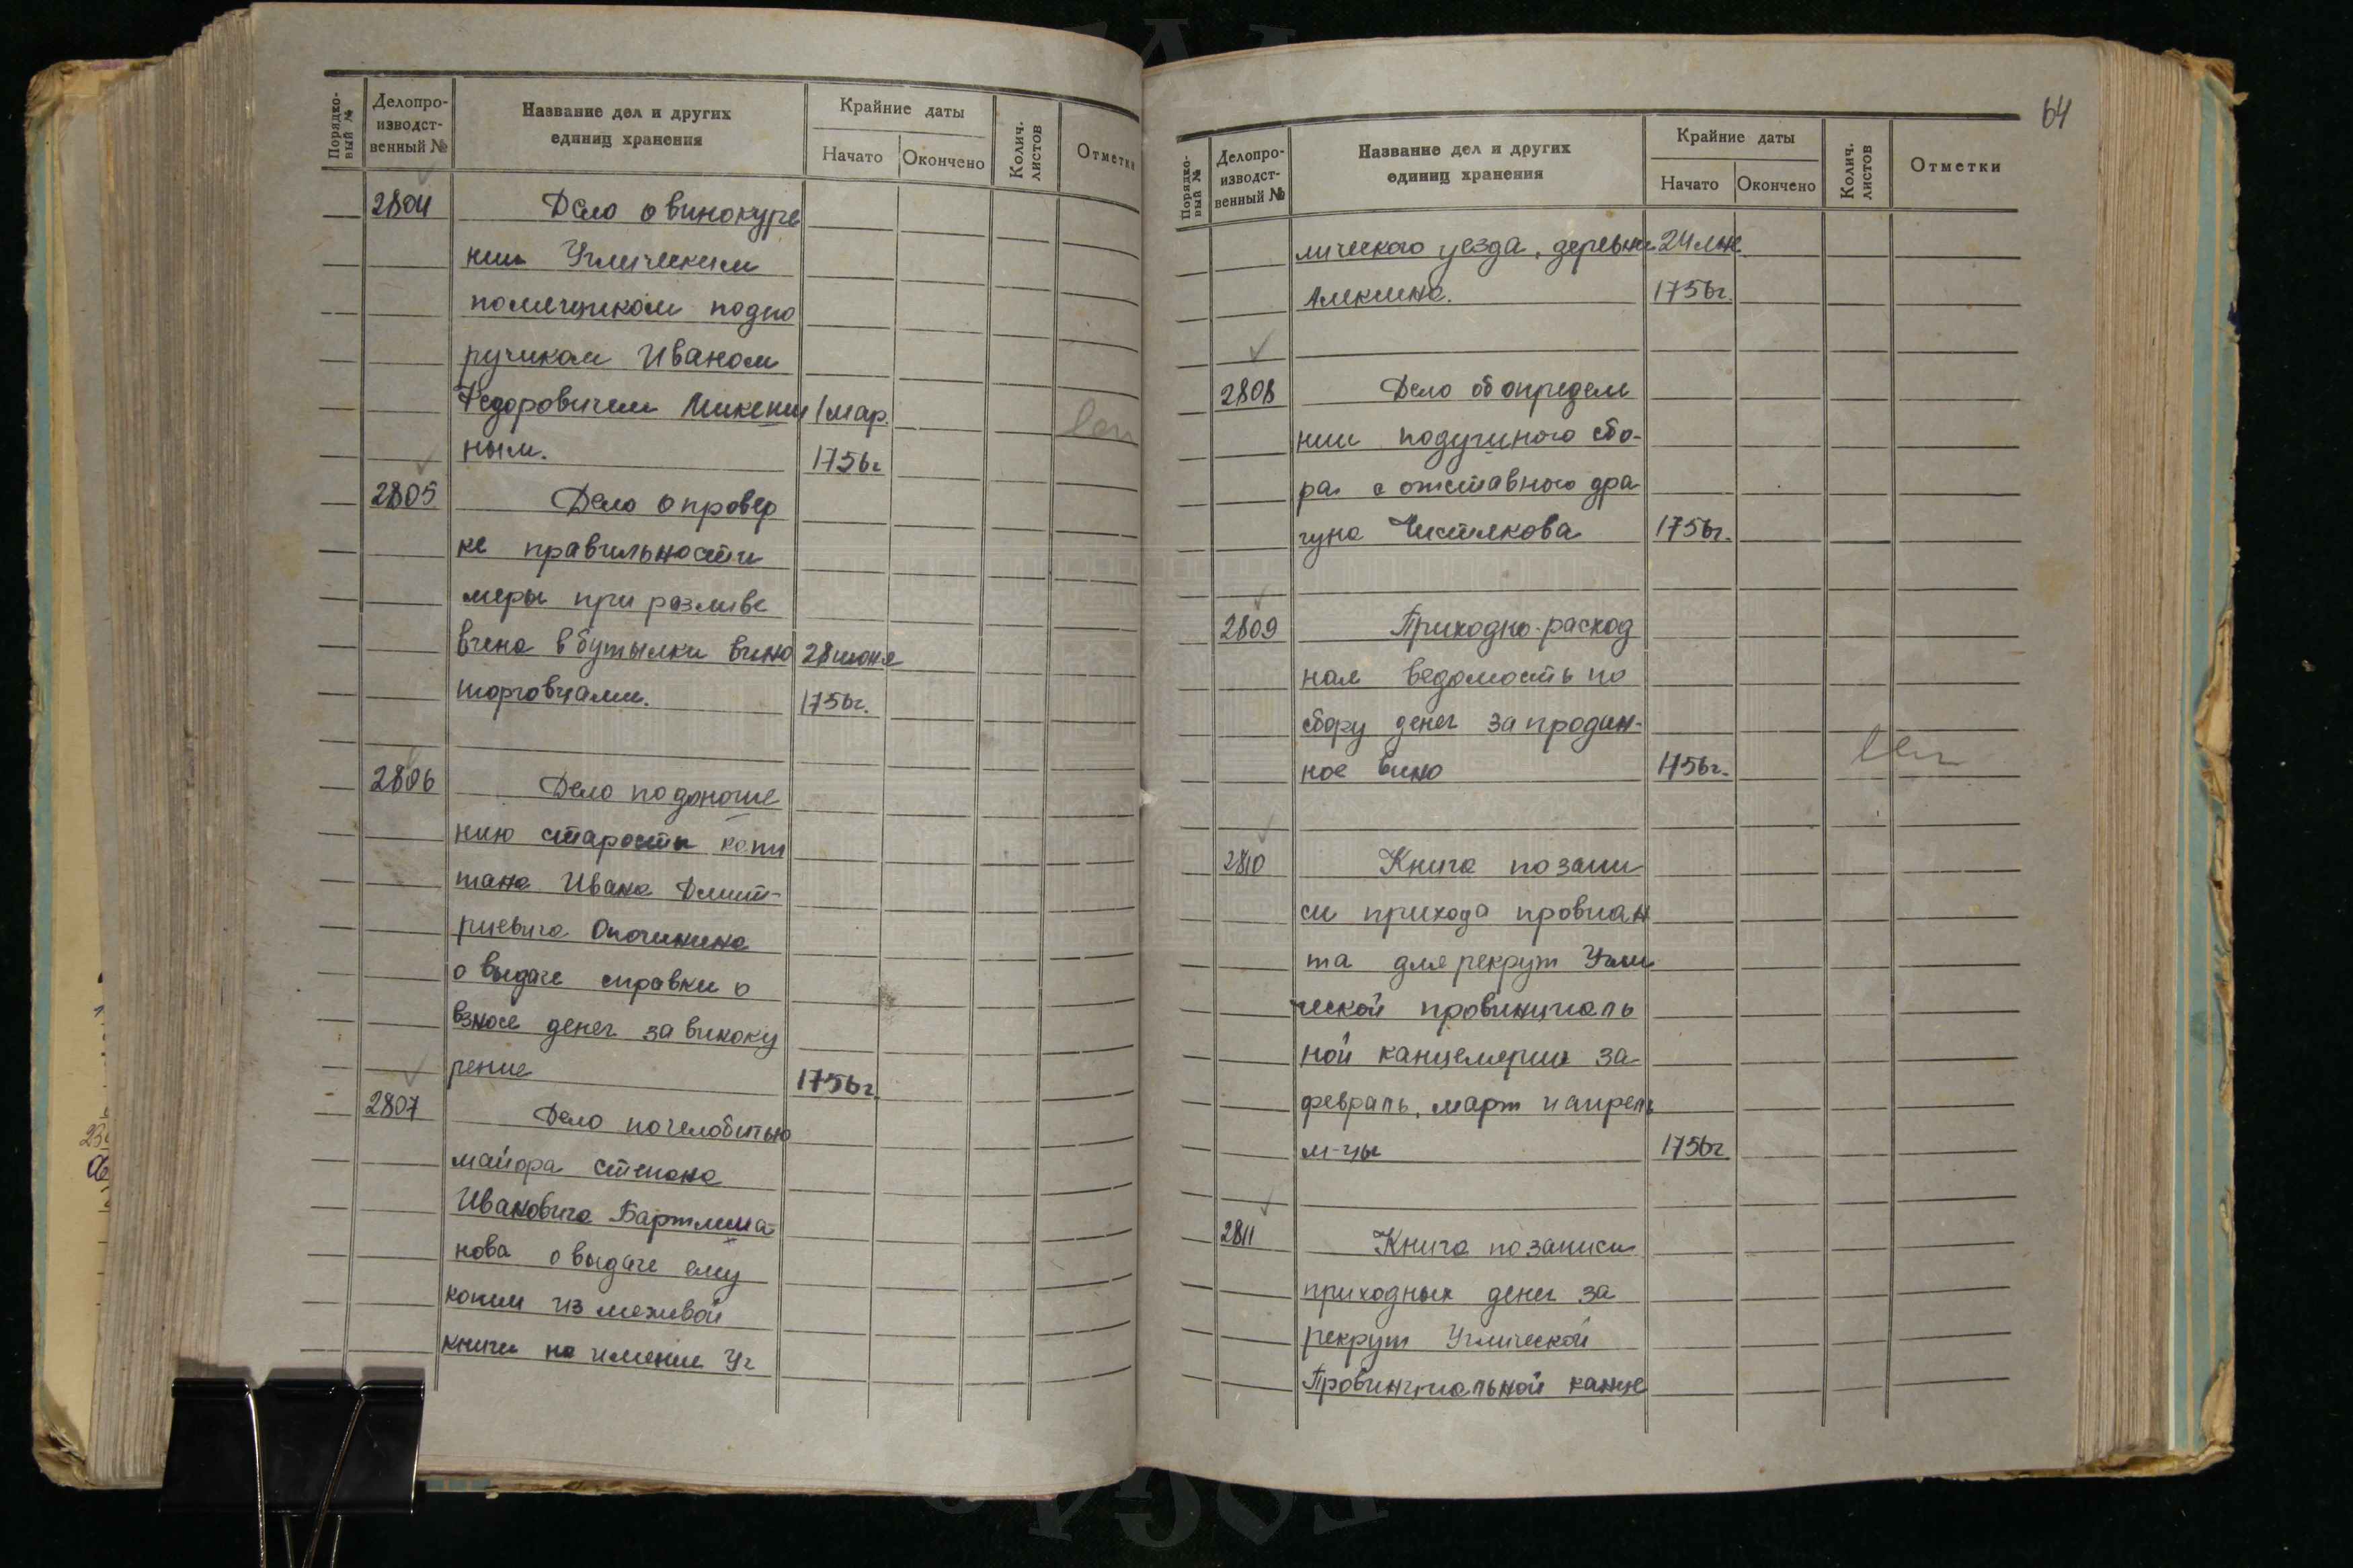 Порядковый №
Делопроизводственный №
Название дел и других единиц хранения
Крайние даты
Начато
Окончено
Колич. листов
Отметки
2804 Дело о винокуре
нии Угличским
помещиком подпо
ручиком Иваном
Федоровичем Микени 1 мар.
ным. 1756г
2805 Дело о провер
ке правильности
меры при разливе
вина в бутылки вино 28 июня
торговцами. 1756г.
2806 Дело по доноше
нию старосты капи
тана Ивана Дмит-
риевича Опочинина
о выдаче справки о
взносе денег за виноку
рение 1756г.
2807 Дело по челобитью
майора Степана
Ивановича Бартлима-
нова о выдаче ему
копии из межевой
книги на имение Уг
64
Порядковый №
Делопроизводственный №
Название дел и других единиц хранения
Крайние даты
Начато
Окончено
Колич. листов
Отметки
лического уезда, деревни 24
Алекина. 1756г.
2808 Дело об определе
нии подушного сбо-
ра с отставного дра
гуна Чистякова 1756г.
2809 Приходно-расход
ная ведомость по
сбору денег за продан-
ное вино 1756г.
2810 Книга по запи
си прихода провиан
та для рекрут Угли
ческой провинциаль
ной канцелярии за
февраль, март и апрель
м-цы 1756г
2811 Книга по записи
приходных денег за
рекрут Углической
Провинциальной канце